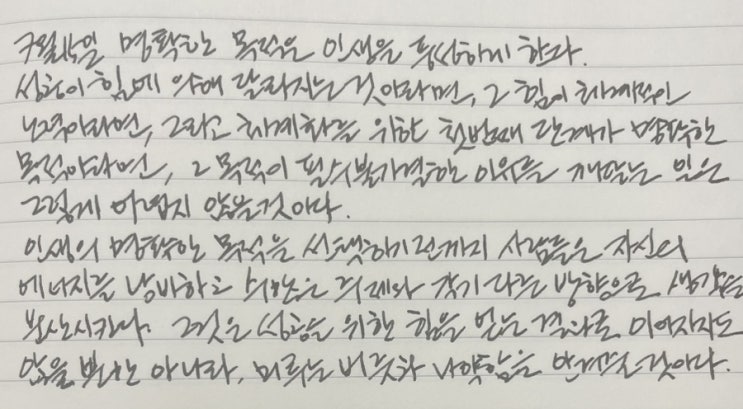 7월15일 명확한 목적은 인생을 풍성하게 한다.
성공이 힘에 의해 달라지는 것이라면, 그 힘이 체계적인
노력이라면, 그리고 체계화를 위한 첫번째 단계가 명확한
목적이라면, 그 목적이 필수불가결한 이유를 깨닫는 일은
그렇게 어렵지 않을것이다.
인생의 명확한 목적을 선택하기전까지 사람들은 자신의
에너지를 낭비하고 수많은 주제와 각기 다른 방향으로 생각을
분산시키다. 그것은 성공을 위한 힘을 얻는 결과로 이어지지도
않을 뿐만 아니라, 미루는 버릇과 나약함을 안겨줄 것이다.